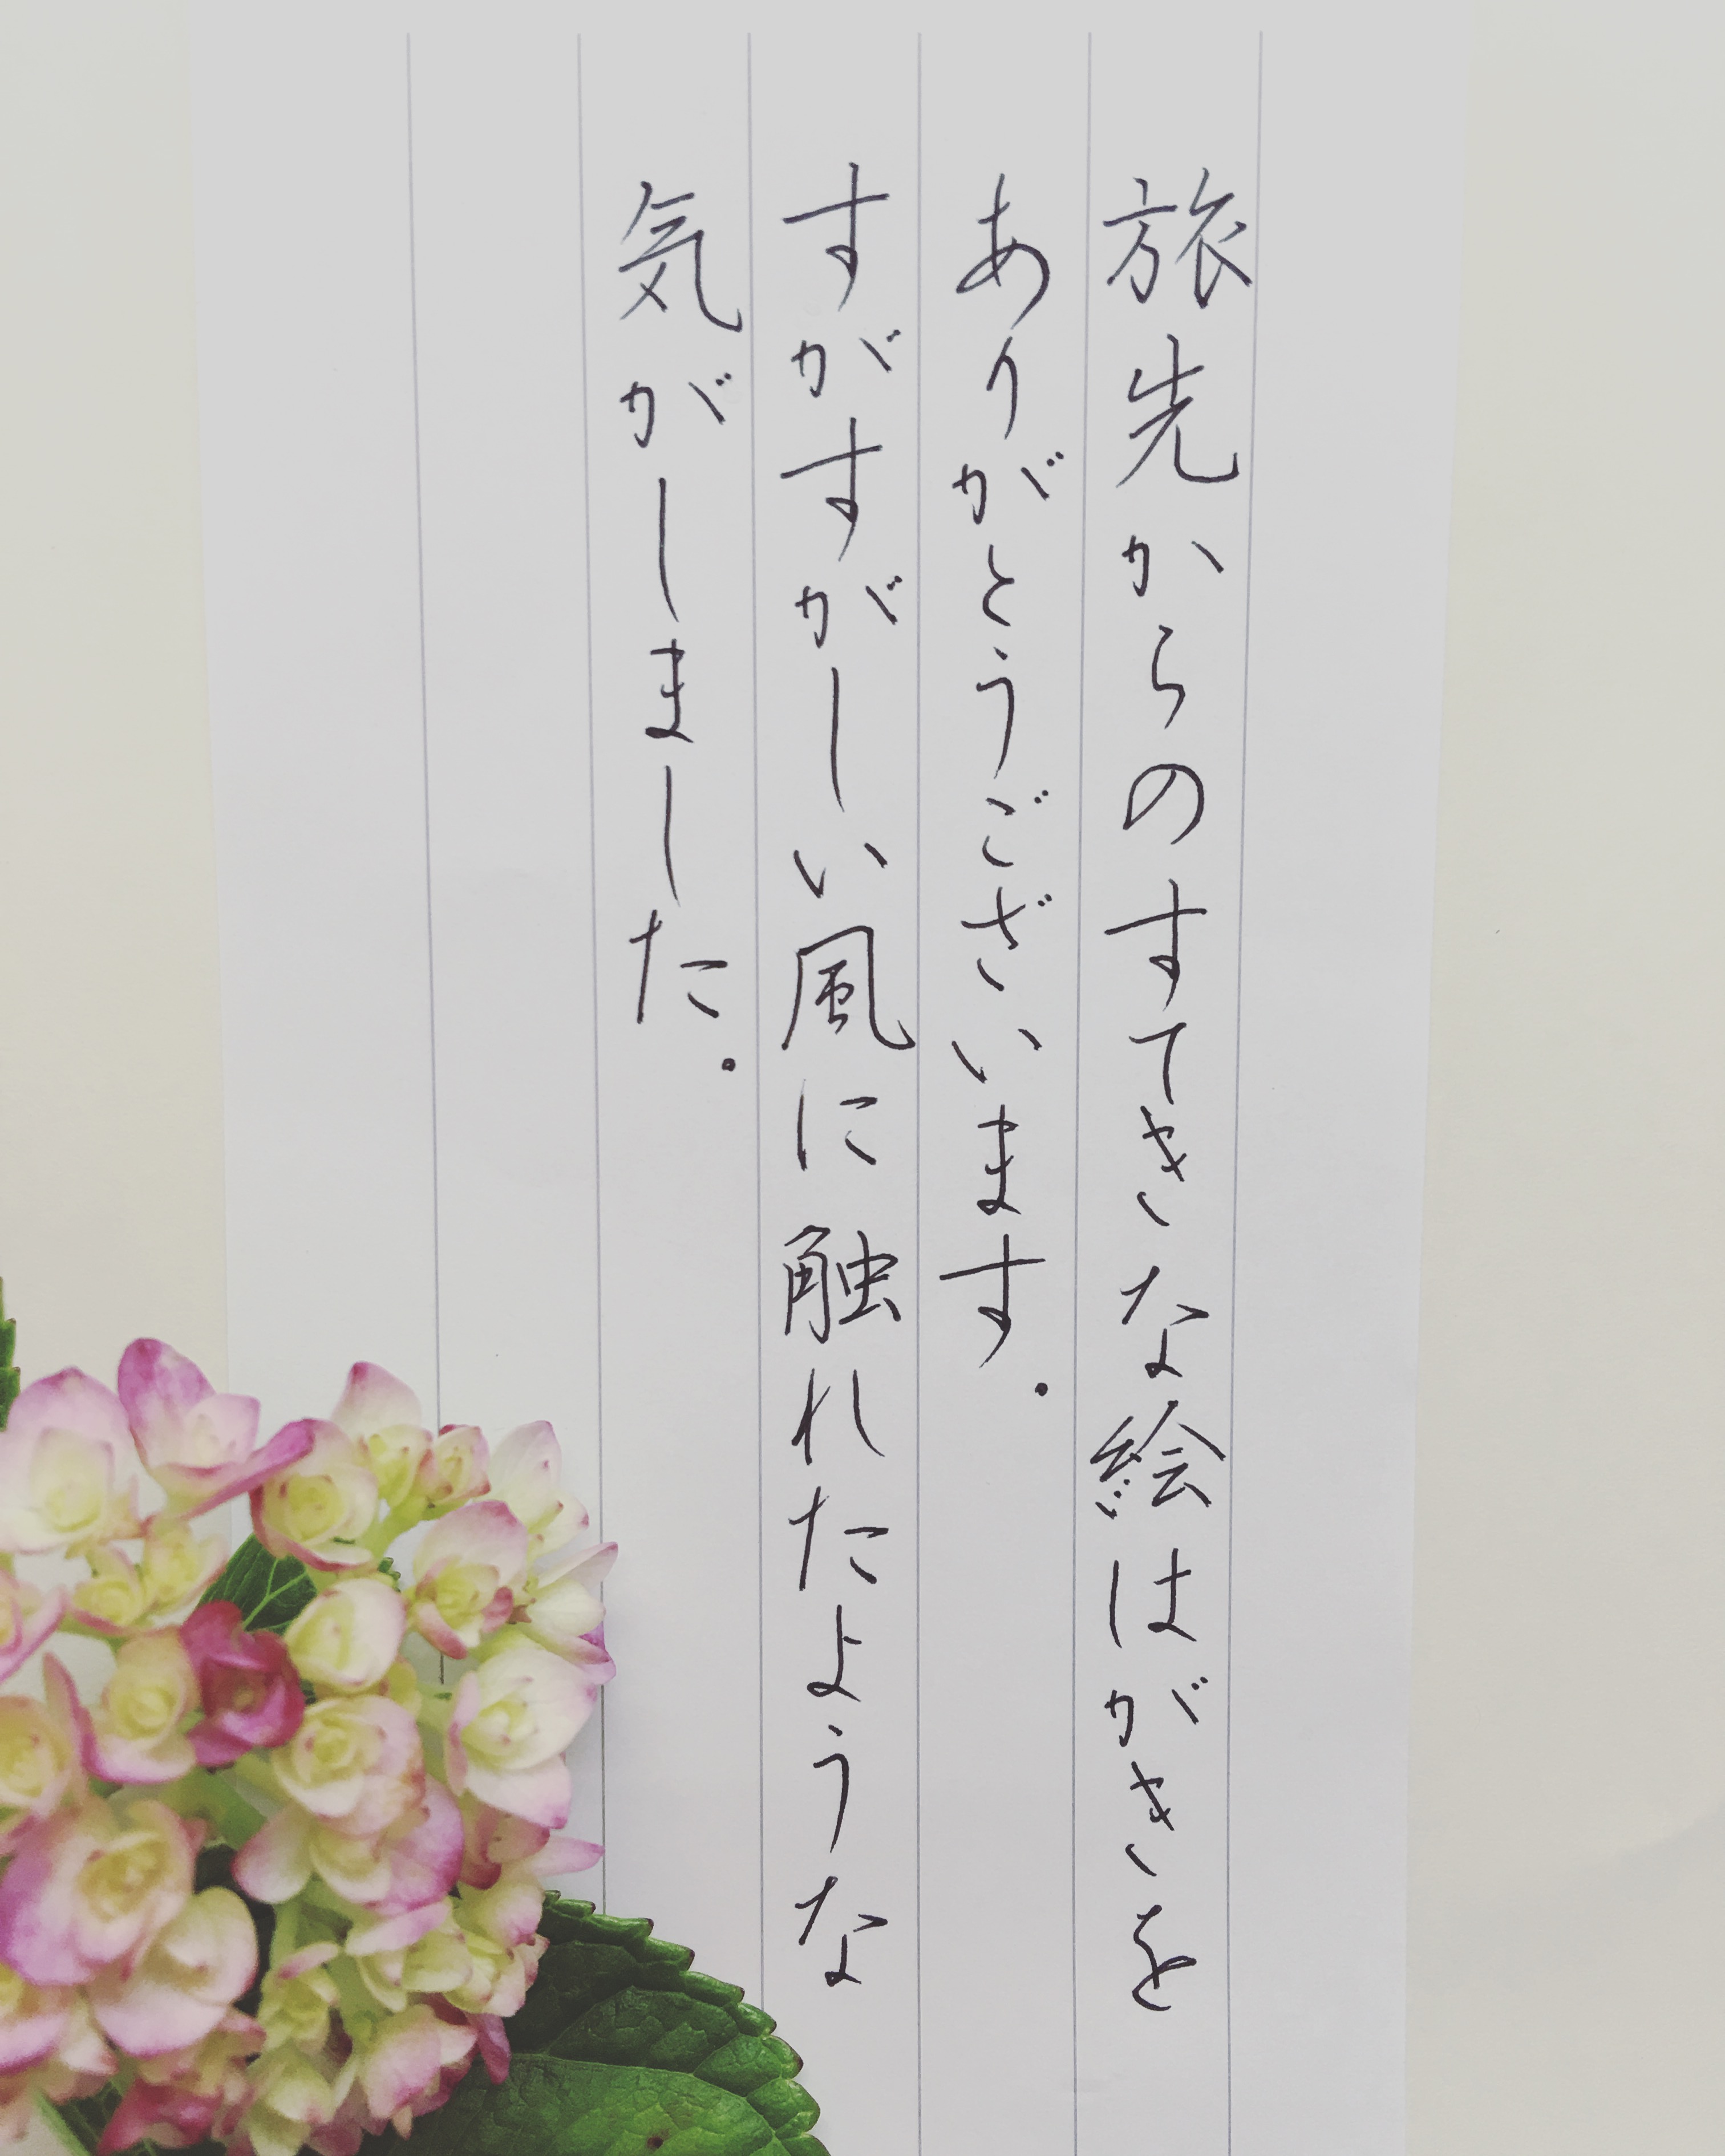 旅先からのすてきな絵はがきを
ありがとうございます。
すがすがしい風に触れたような
気がしました。